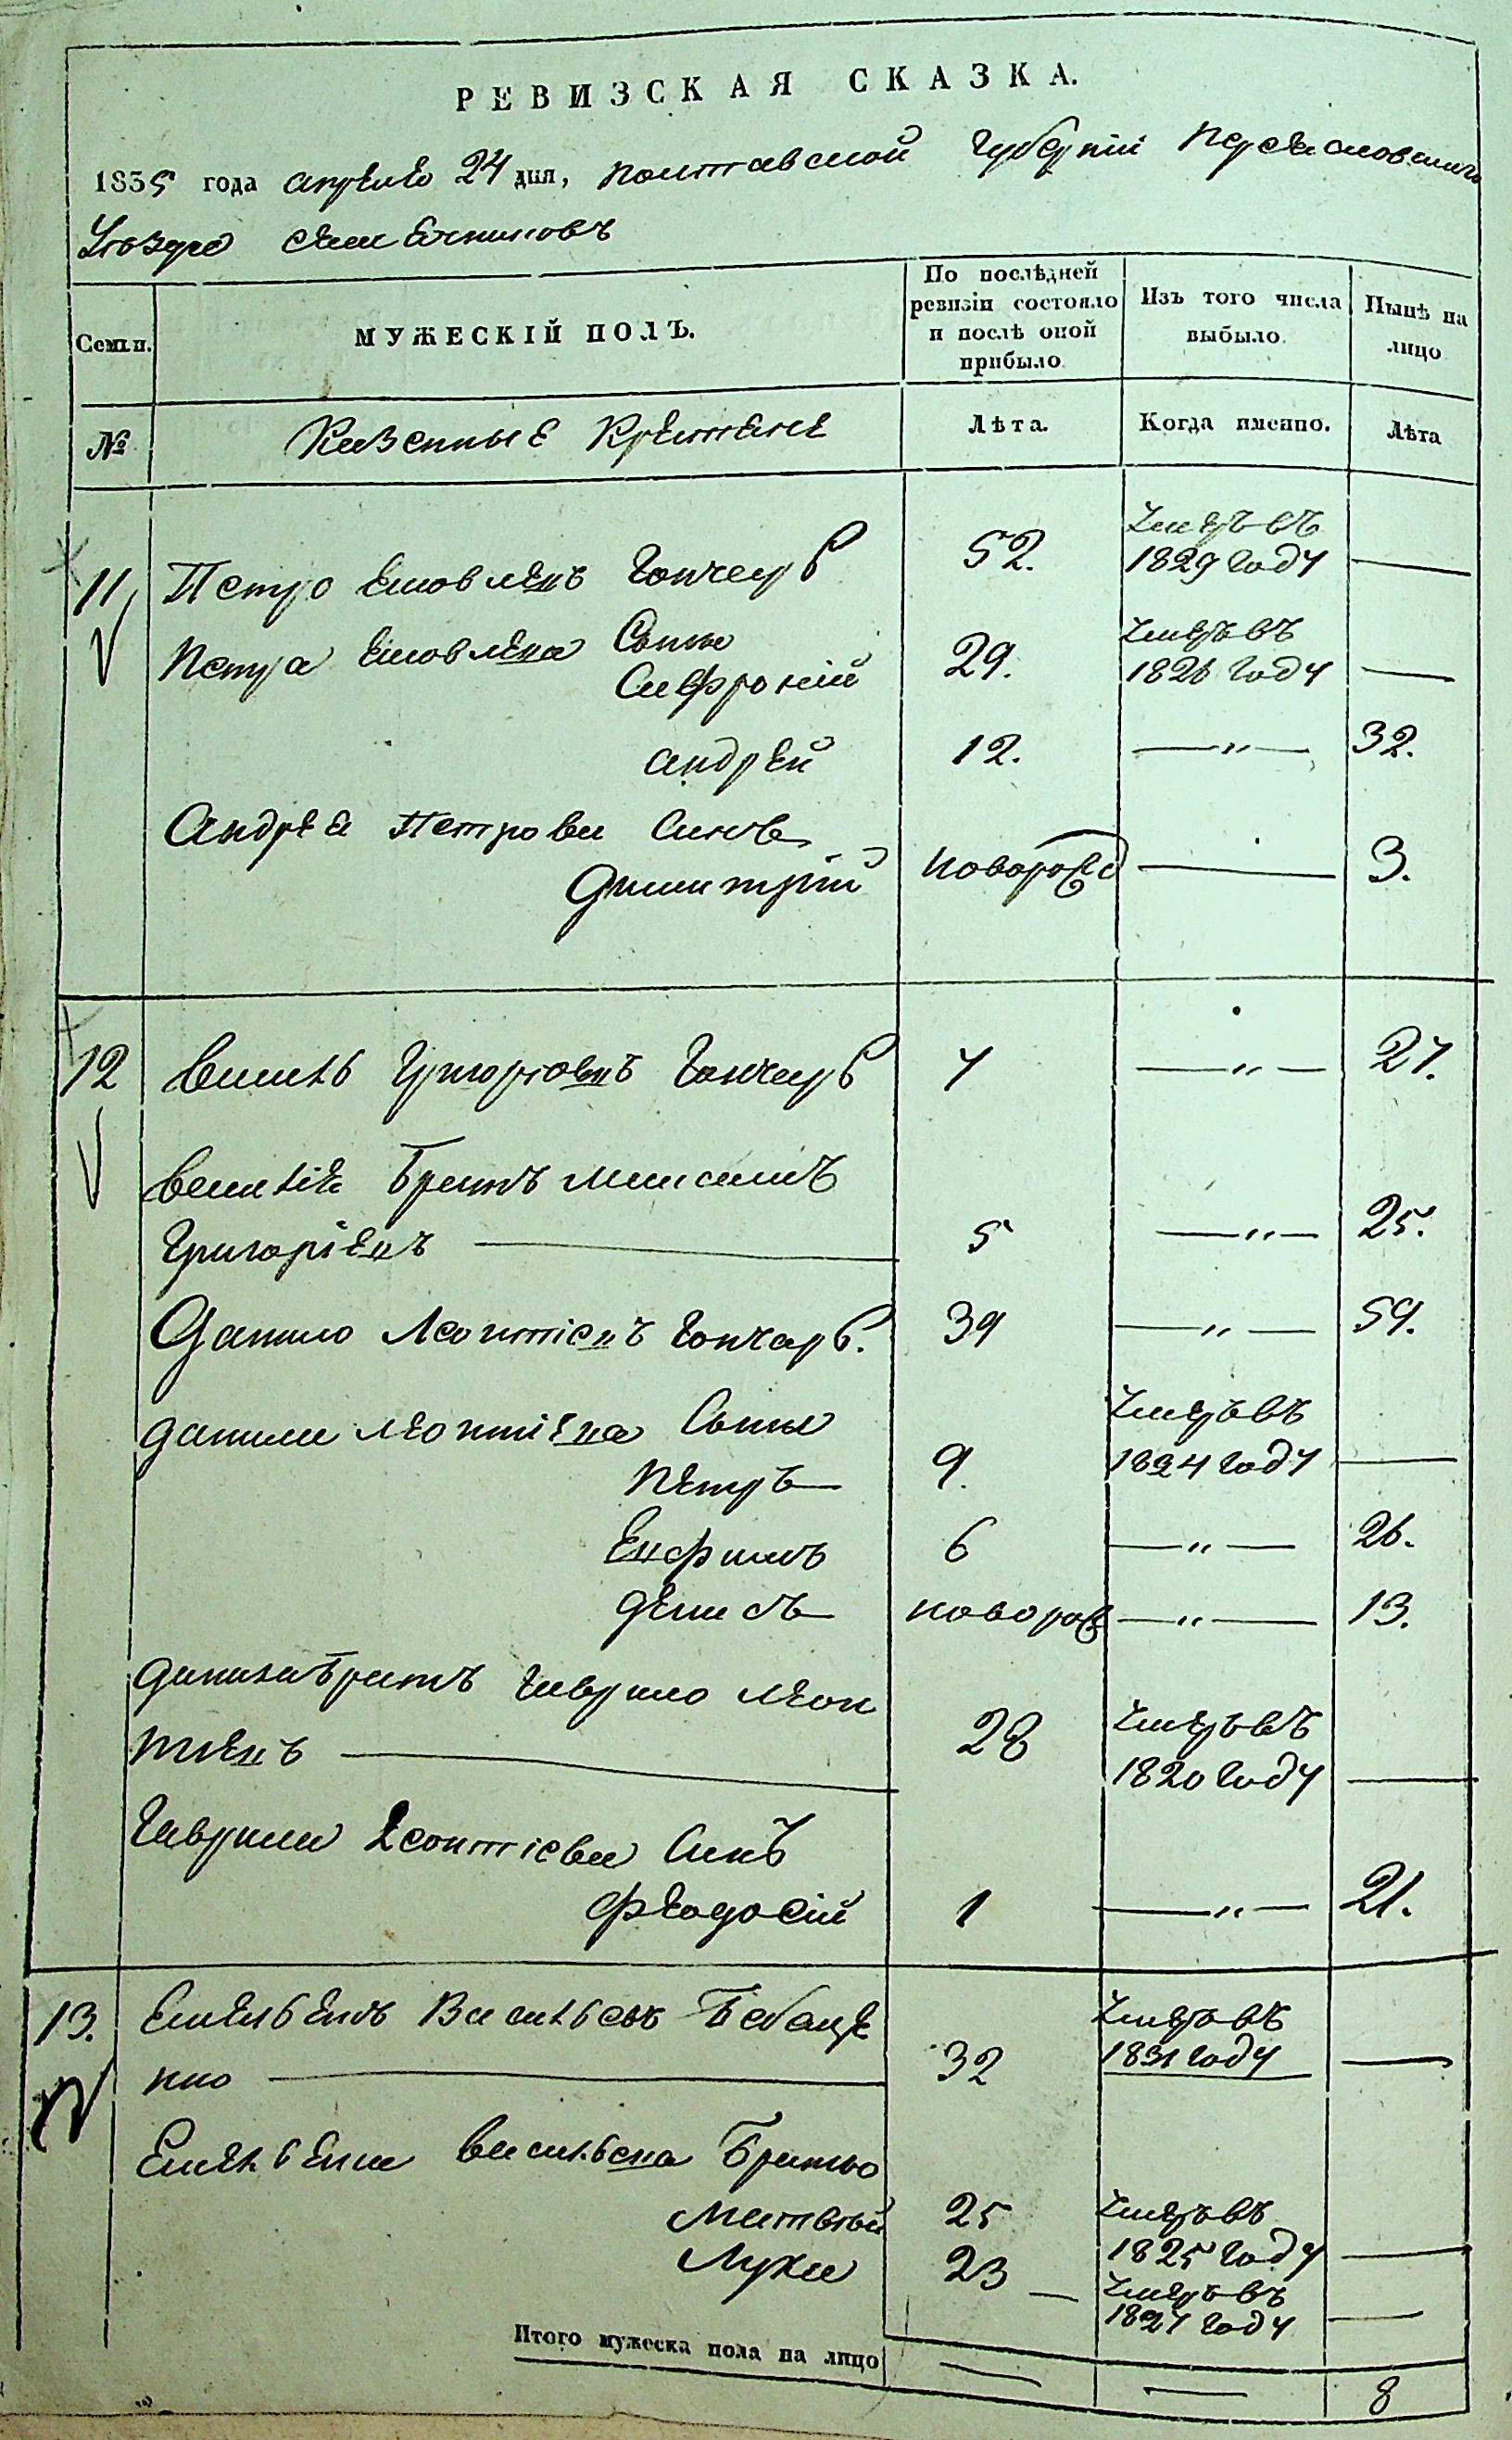 РЕВИЗСКАЯ СКАЗКА.
1835 года апреля 24 дня, Полтавской Губернии Переяславского
Уезда
Семьи.
МУЖЕСКІЙ ПОЛЪ.
По послѣдней
ревизіи состояло
и послѣ оной
прибыло
Изъ того числа
выбыло.
Нынѣ на
лицо
№
Казенные Крестяне
Лѣта.
Когда именно.
Лѣта
11, Петро Яковленъ Гончарь 52. Умеръ въ
1829 Году —
Петра Яковлена Сыны
Сафроній 29. Умеръ въ
1826 Году —
андрей 12. — " — 32.
Андрея Петрова Синъ
Димитрій новорожд — 3.
12 Василь Григоріевъ Гончарь 7 — " — 27.
Василія Братъ Максимъ
Григоріенъ — 5 — " — 25.
Данило Леонтіенъ Гончарь. 39 — " — 59.
Данила Леонтіена Сыны
Петръ 9. Умеръ въ
1824 Году —
Енфимъ 6 — " — 26.
Денисъ новорож — " — 13.
Данила Братъ Гаврило Леон
тіенъ — 28 Умеръ въ
1820 Году —
Гаврила Леонтіева Синъ
Феодосій 1 — " — 21.
13. Емельянъ Васильевъ
32 Умеръ въ
1831 Году —
Емельяна Васильена Братья
Матвѣй 25 Умеръ въ
1825 Году —
Лука 23 — Умеръ въ
1827 Году —
Итого мужеска пола на лицо — — 8